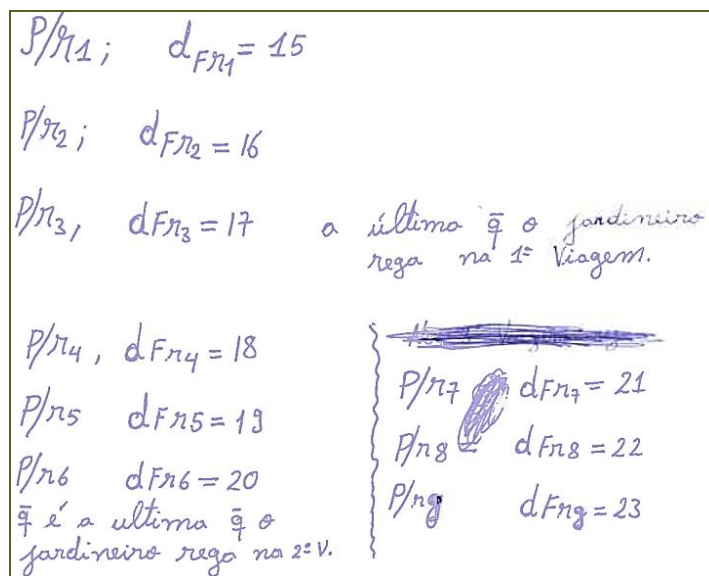 P/r1; dFr1 = 15
P/r2; dFr2 = 16
P/r3, dFr3 = 17 a última q̄ o jardineiro
rega na 1ª Viagem.
P/r4, dFr4 = 18
P/r5 dFr5 = 19
P/r6 dFr6 = 20
q̄ é a ultima q̄ o
jardineiro rega na 2ª V.
P/r7 dFr7 = 21
P/r8 dFr8 = 22
P/r9 dFr9 = 23